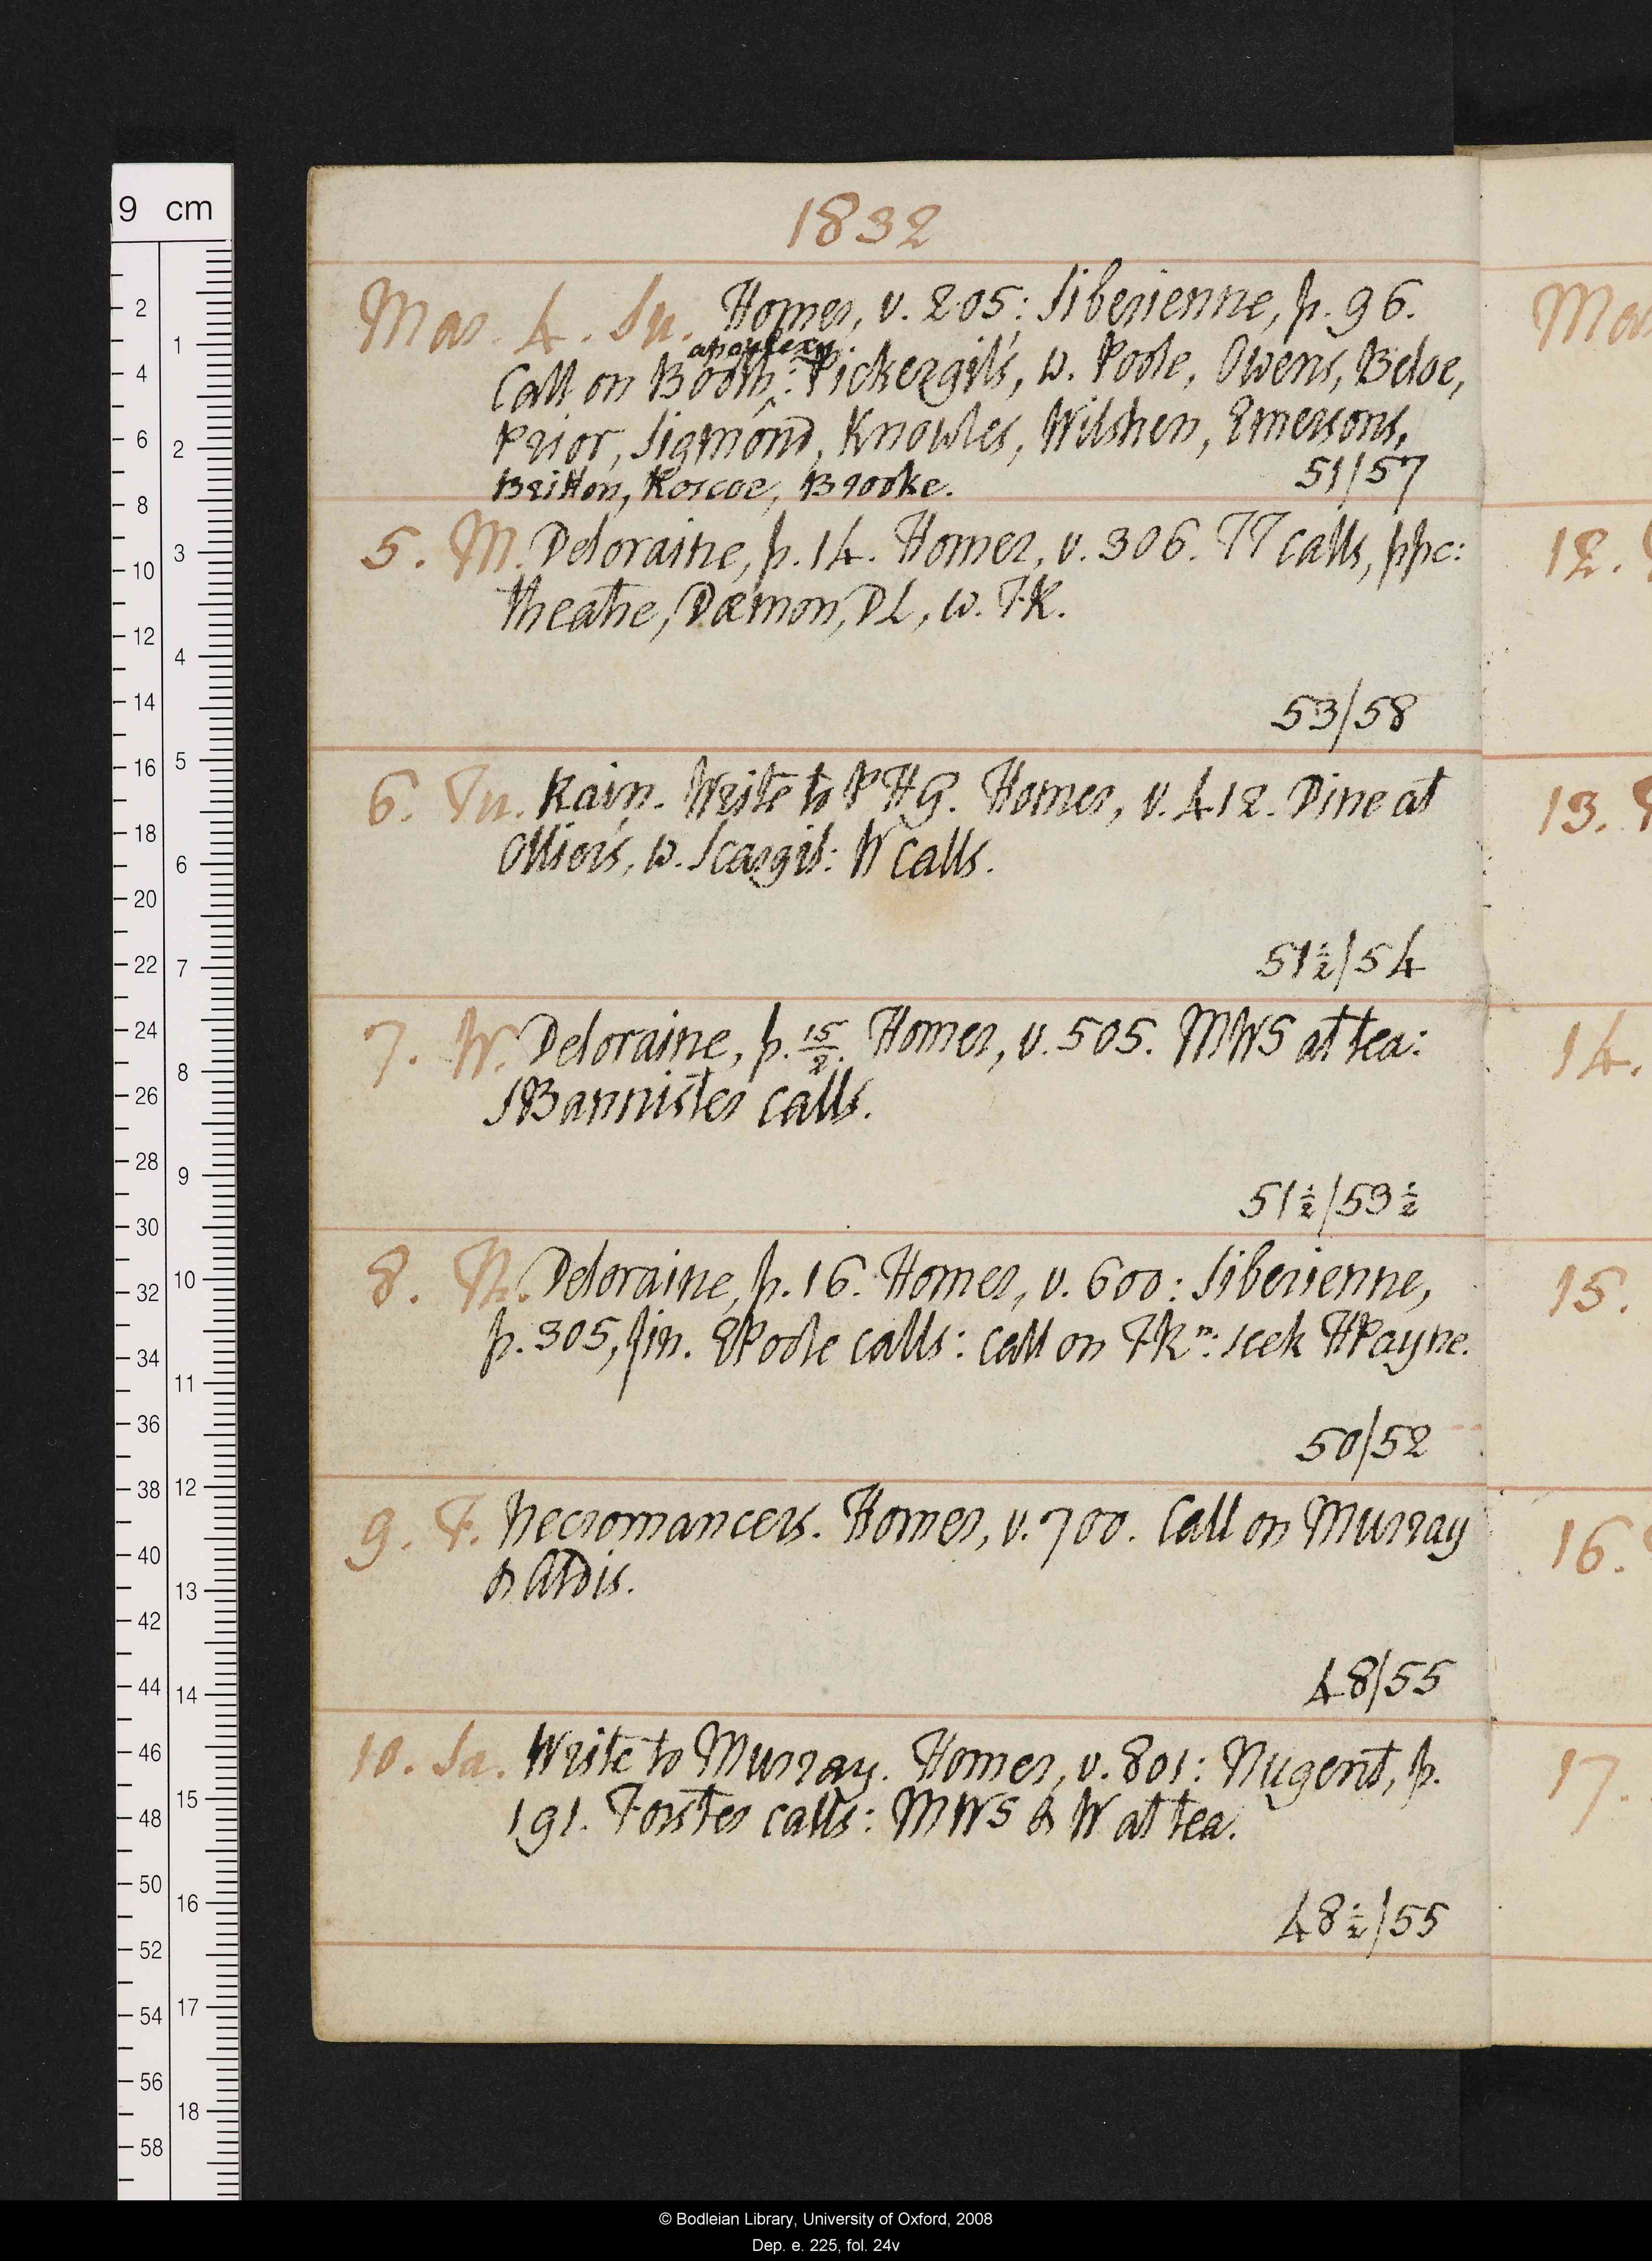 1832
Mar. 4. Su. Homer, v. 205: Siberienne, p. 96.
apoplexy
Call on Booth: Pickersgil's, w. Poole, Owens, Beloe,
Prior, Sigmond, Knowles, Wilshen, Emersons,
Britton, Roscoe, Brooke. 51/57
5. M. Deloraine, p. 14. Homer, v. 306. TT calls, ppc:
theatre, Dæmon, DL, w. FK.
53/58
6. Tu. Rain. Write to PHG. Homer, v. 412. Dine at
Ollier's, w. Scargil: W calls.
51½/54
7. W. Deloraine, p. 15/2. Homer, v. 505. MWS at tea:
SBannister calls.
51½/53½
8. Th. Deloraine, p. 16. Homer, v. 600: Siberienne,
p. 305, fin. EPoole calls: call on FKn: seek HPayne.
50/52
9. F. Necromancers. Homer, v. 700. Call on Murray
& Aldis.
48/55
10. Sa. Write to Murray. Homer, v. 801: Nugent, p.
191. Forster calls: MWS & W at tea.
48½/55
Mar
12.
13.
14.
15.
16.
17.
9 cm
2
4
6
8
10
12
14
16
18
20
22
24
26
28
30
32
34
36
38
40
42
44
46
48
50
52
54
56
58
1
2
3
4
5
6
7
8
9
10
11
12
13
14
15
16
17
18
© Bodleian Library, University of Oxford, 2008
Dep. e. 225, fol. 24v